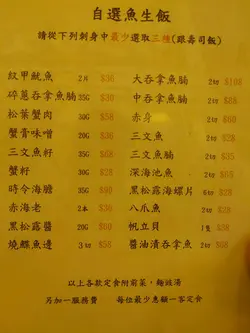 自選魚生飯
請從下列刺身中最少選取三種(跟壽司飯)
紋甲魷魚 2片 $36
碎蔥吞拿魚腩 35G $30
松葉蟹肉 35G $38
蟹膏味噌 30G $38
三文魚籽 35G $58
蟹籽 30G $28
時令海膽 35G
赤海老 2本
黑松露醬 20G
燒鰈魚邊 3切 $58
大吞拿魚腩 2切 $108
中吞拿魚腩 2切 $88
赤身 2切 $38
三文魚 2切 $28
三文魚腩 2切 $38
深海池魚 2切 $38
黑松露海螺片 6切 $28
八爪魚 2切 $38
帆立貝 1隻 $38
醬油漬吞拿魚 2切 $58
以上各款定食附前菜，麵豉湯
另加一服務費 每位最少惠顧一客定食